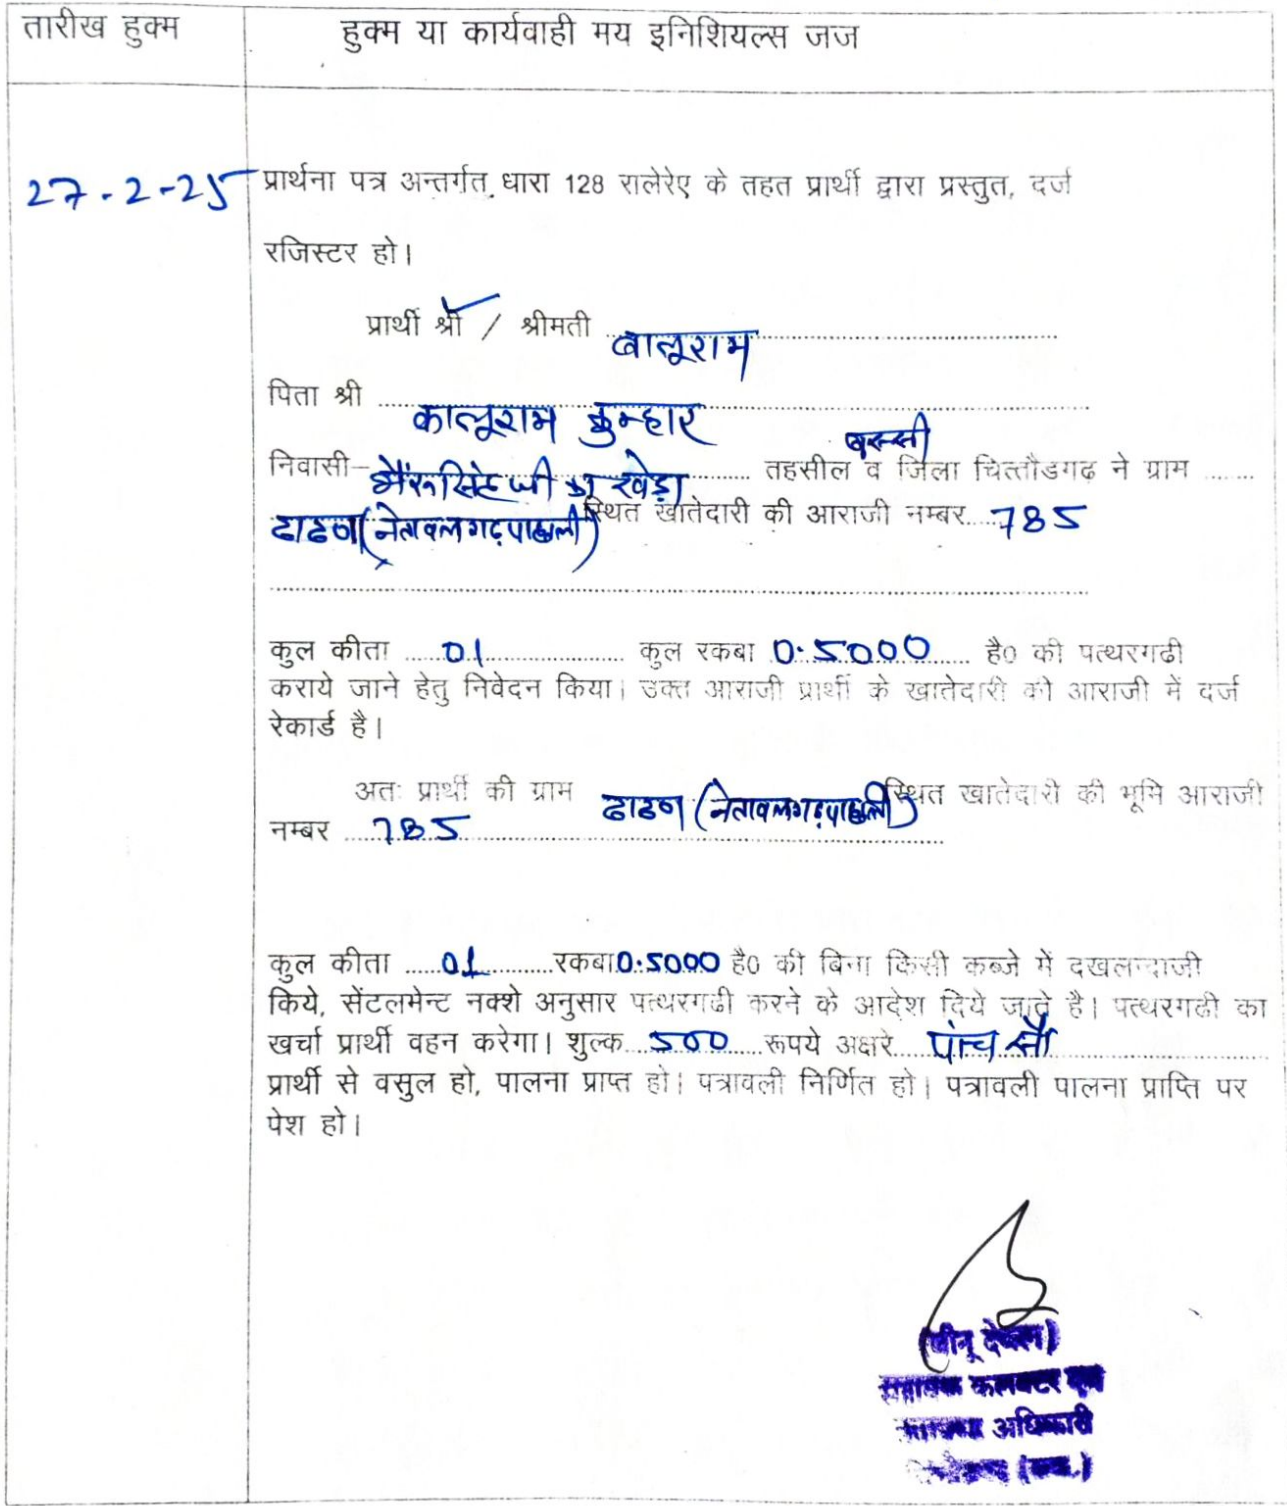 तारीख हुक्म
हुक्म या कार्यवाही मय इनिशियल्स जज
27-2-25
प्रार्थना पत्र अन्तर्गत धारा 128 रालेरेए के तहत प्रार्थी द्वारा प्रस्तुत, दर्ज
रजिस्टर हो।
प्रार्थी श्री / श्रीमती बालूराम
पिता श्री कालूराम कुम्हार
निवासी- भैंरूसिंह जी का खेड़ा तहसील बस्सी व जिला चित्तौडगढ़ ने ग्राम
ढाढण (नेतावलगढ़ पाछली) स्थित खातेदारी की आराजी नम्बर 785
कुल कीता 01 कुल रकबा 0.5000 है0 की पत्थरगढी
कराये जाने हेतु निवेदन किया। उक्त आराजी प्रार्थी के खातेदारी की आराजी में दर्ज
रेकार्ड है।
अतः प्रार्थी की ग्राम ढाढण (नेतावलगढ़ पाछली) स्थित खातेदारी की भूमि आराजी
नम्बर 785
कुल कीता 01 रकबा 0.5000 है0 की बिना किसी कब्जे में दखलन्दाजी
किये, सेंटलमेन्ट नक्शे अनुसार पत्थरगढी करने के आदेश दिये जाते है। पत्थरगढी का
खर्चा प्रार्थी वहन करेगा। शुल्क 500 रूपये अक्षरे पांच सौ
प्रार्थी से वसुल हो, पालना प्राप्त हो। पत्रावली निर्णित हो। पत्रावली पालना प्राप्ति पर
पेश हो।
कलक्टर एवं
अधिकारी